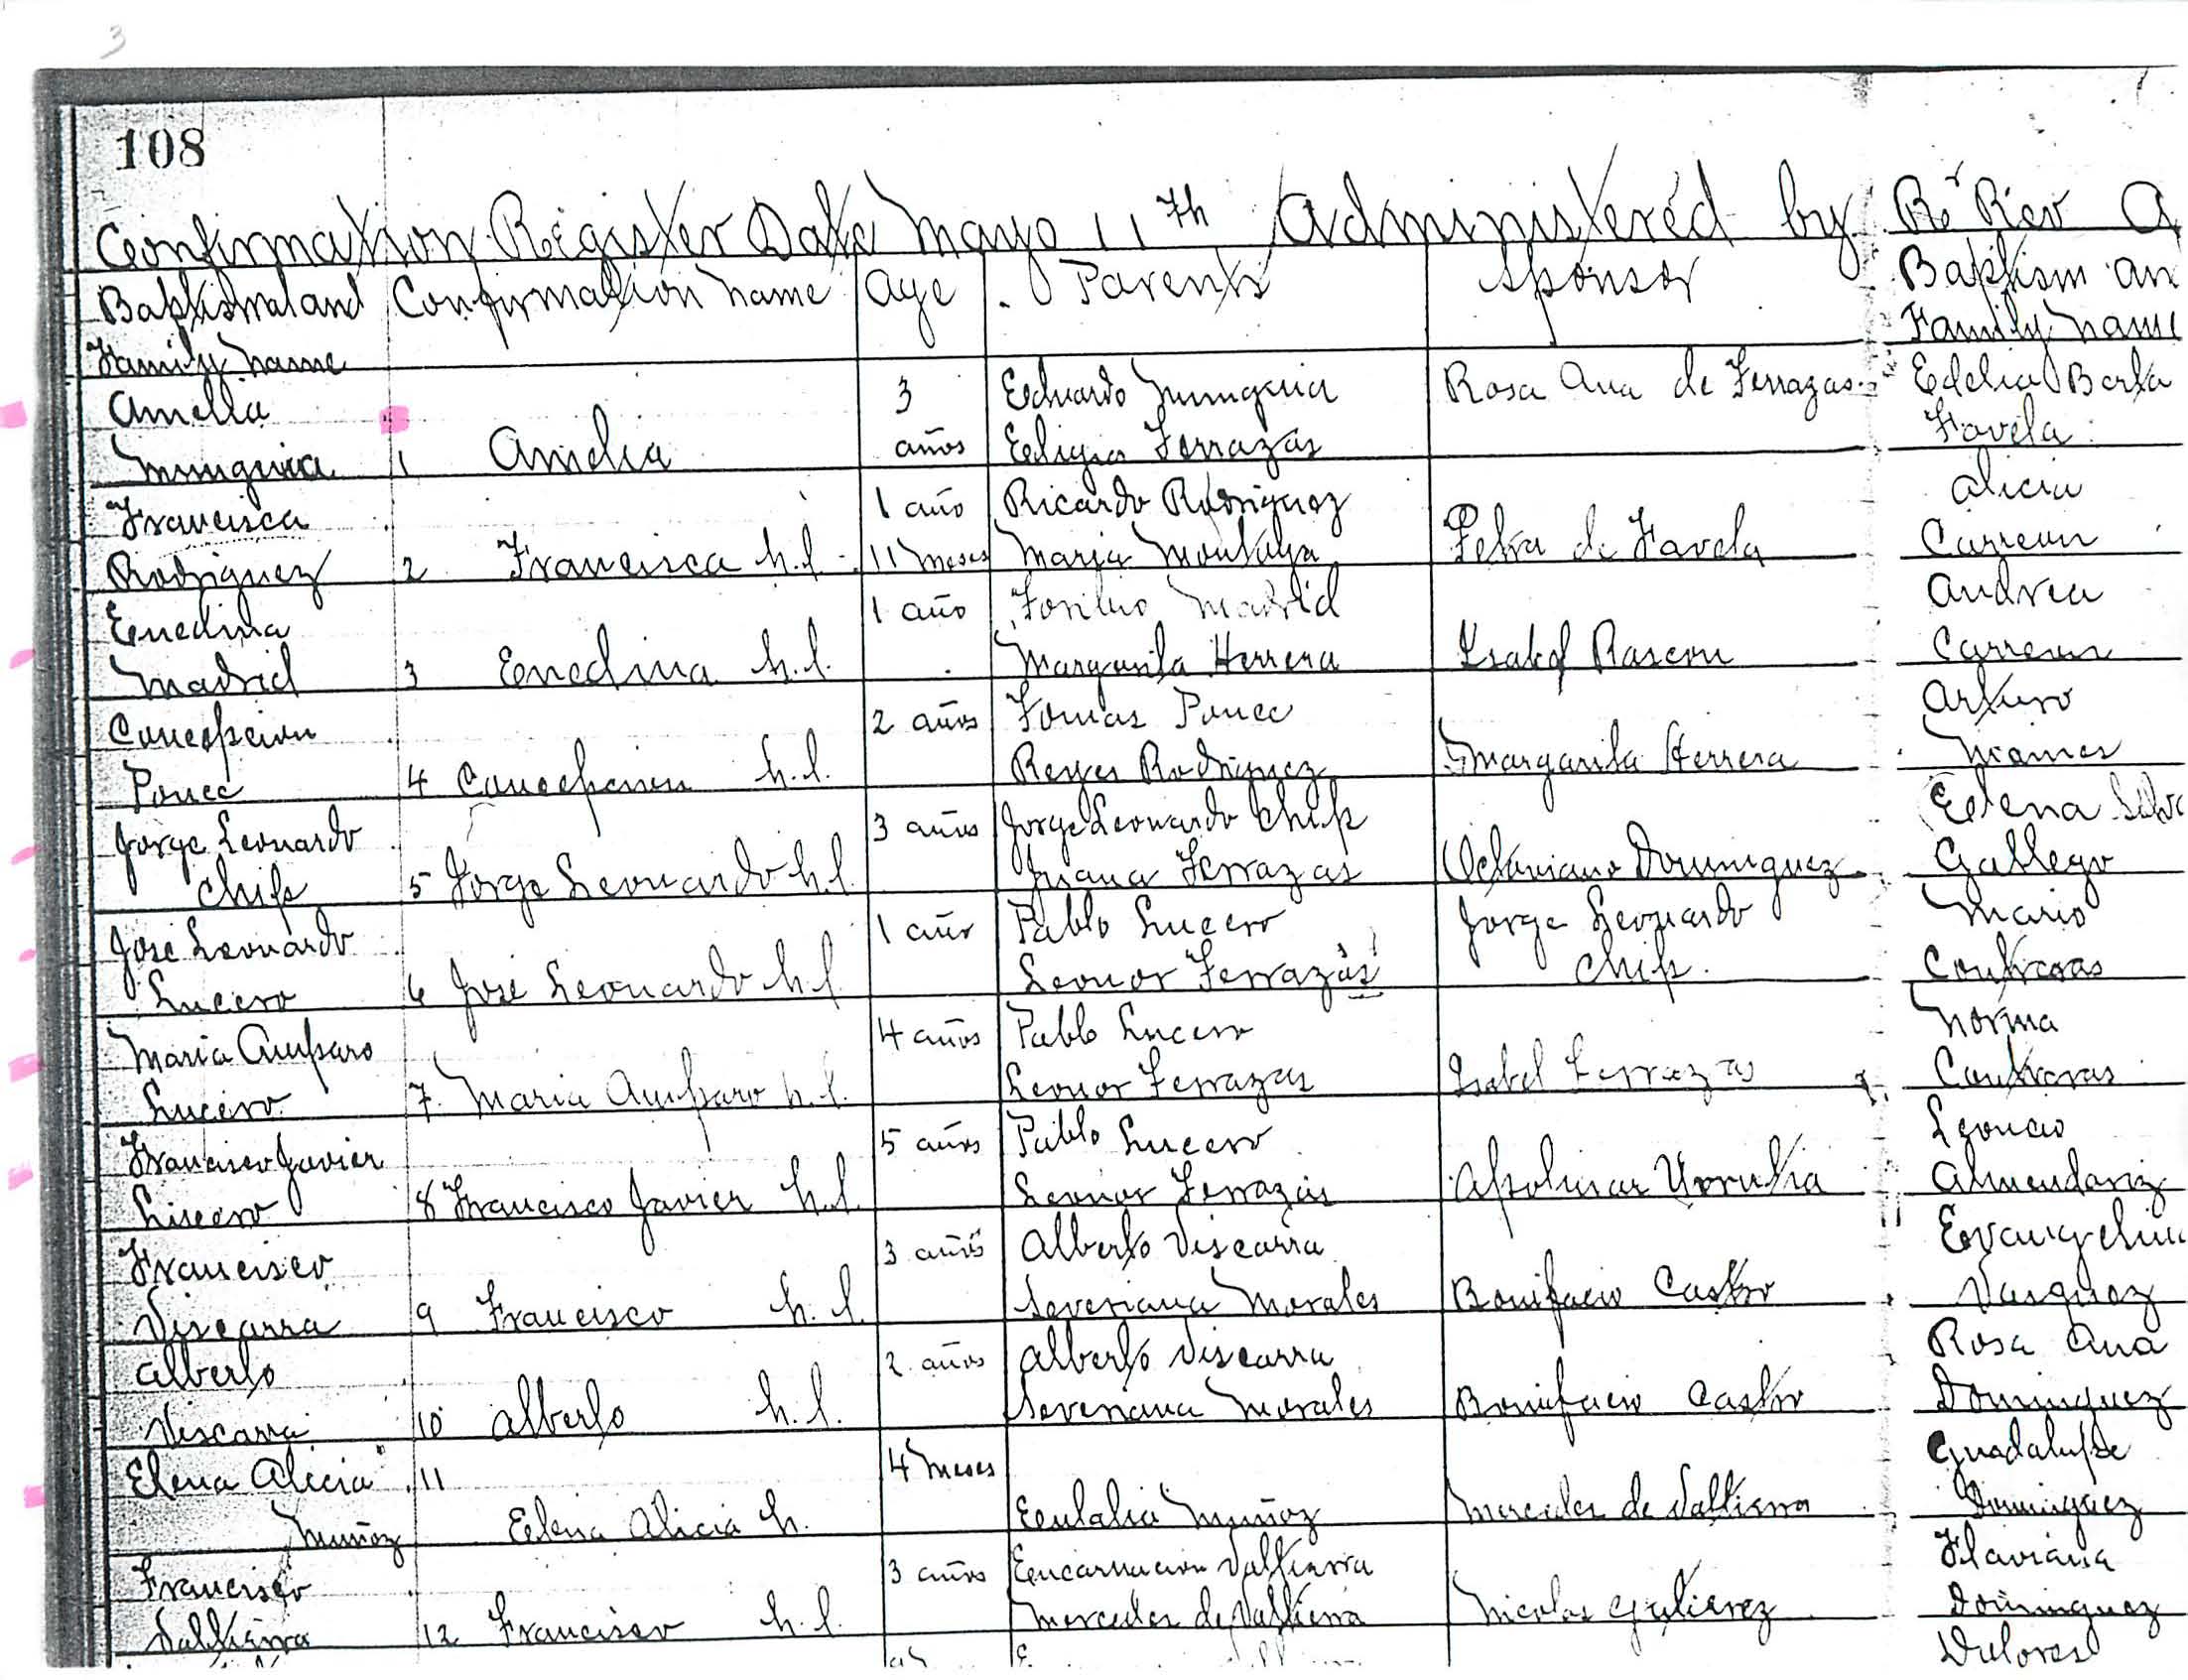 3
108
Confirmation Register Date Mayo 11th Administered by Rt Rev A
Baptismal and Confirmation name Age Parents Sponsor Baptism an
Family name Family name
Amelia 3 Eduardo Munguia Rosa Ana de Terrazas Edelia Berta
Munguia 1 Amelia años Eligia Terrazas Favela
Francisca 1 año Ricardo Rodriguez Alicia
Rodriguez 2 Francisca h.l. 11 meses Maria Montoya Petra de Favela Carreon
Enedina 1 año Madrid Andrea
Madrid 3 Enedina h.l. Margarita Herrera Ysabel Rascon Carreon
Concepcion 2 años Tomas Ponce Arturo
Ponce 4 Concepcion h.l. Reyes Rodriguez Margarita Herrera
Jorge Leonardo 3 años Jorge Leonardo Chip Elena
Chip 5 Jorge Leonardo h.l. Juana Terrazas Octaviano Dominguez Gallego
Jose Leonardo 1 año Pablo Lucero Jorge Leonardo Mario
Lucero 6 José Leonardo h.l. Leonor Terrazas Chip. Contreras
Maria Amparo 4 años Pablo Lucero Norma
Lucero 7. Maria Amparo h.l. Leonor Terrazas Isabel Terrazas Contreras
Francisco Javier 5 años Pablo Lucero Leoncio
Lucero 8 Francisco Javier h.l. Leonor Terrazas Apolinar Urrutia Almendariz
Francisco 3 años Alberto Viscarra Evangelina
Viscarra 9 Francisco h.l. Severiana Morales Bonifacio Castro Vasquez
Alberto 2 años Alberto Viscarra Rosa Ana
Viscarra 10 Alberto h.l. Severiana Morales Bonifacio Castro Dominguez
Elena Alicia 11 4 meses Guadalupe
Muñoz Elena Alicia h. Eulalia Muñoz Mercedes de Valtierra Dominguez
Francisco 3 años Encarnacion Valtierra Flaviana
Valtierra 12 Francisco h.l. Mercedes de Valtierra Nicolas Gutierrez Dominguez
Dolores